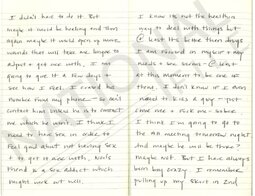 I didn't have to do it. But
maybe it would be healing and then
again maybe it would open up more
wounds that will take me longer to
adjust & get over with. I am
going to give it a few days &
see how I feel. I erased his
number from my phone - so can't
contact him unless he is to contact
me which he won't. I think I
need to have sex in order to
feel good about not having sex
& to get it over with. Nin's
friend is a sex addict which
might work out well.
I know it's not the healthiest
way to deal with things but
@ least it's better than drugs
I am rooted in myself & my
needs & sex seems @ least
at this moment to be one of
them. I don't know if I even
need to kiss a guy - just
come over fuck me & leave.
I think I'm going to go to
the AA meeting tomorrow night
And maybe he will be there?
maybe not. But I have always
been boy crazy. I remember
pulling up my skirt in 2nd